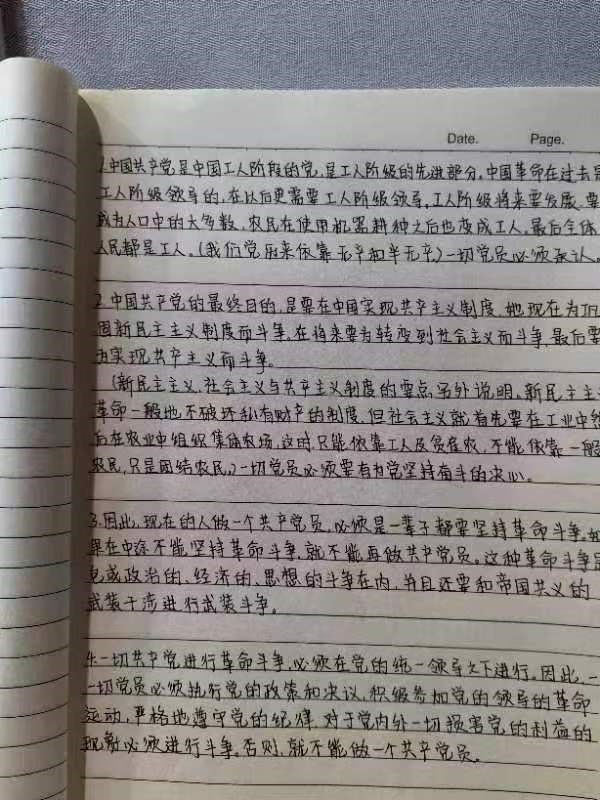 Date. Page.
1.中国共产党是中国工人阶段的党,是工人阶级的先进部分,中国革命在过去是
工人阶级领导的,在以后更需要工人阶级领导,工人阶级将来要发展,要
成为人口中的大多数,农民在使用机器耕种之后也变成工人,最后全体
人民都是工人。(我们党历来依靠无产和半无产)一切党员必须承认。
2.中国共产党的最终目的,是要在中国实现共产主义制度,她现在为巩
固新民主主义制度而斗争,在将来要为转变到社会主义而斗争,最后要
为实现共产主义而斗争。
(新民主主义,社会主义与共产主义制度的要点另外说明,新民主主
革命一般地不破坏私有财产的制度,但社会主义就首先要在工业中然
后在农业中组织集体农场,这时,只能依靠工人及贫雇农,不能依靠一般
农民,只是团结农民。)一切党员必须要有为党坚持奋斗的决心。
3.因此,现在的人做一个共产党员,必须是一辈子都要坚持革命斗争,如
果在中途不能坚持革命斗争,就不能再做共产党员。这种革命斗争是
包或政治的、经济的、思想的斗争在内,并且还要和帝国共义的
武装干涉进行武装斗争。
4.一切共产党进行革命斗争,必须在党的统一领导之下进行,因此,一
一切党员必须执行党的政策和决议,积级参加党的领导的革命
运动,严格地遵守党的纪律,对于党内外一切损害党的利益的
现象必须进行斗争,否则,就不能做一个共产党员。